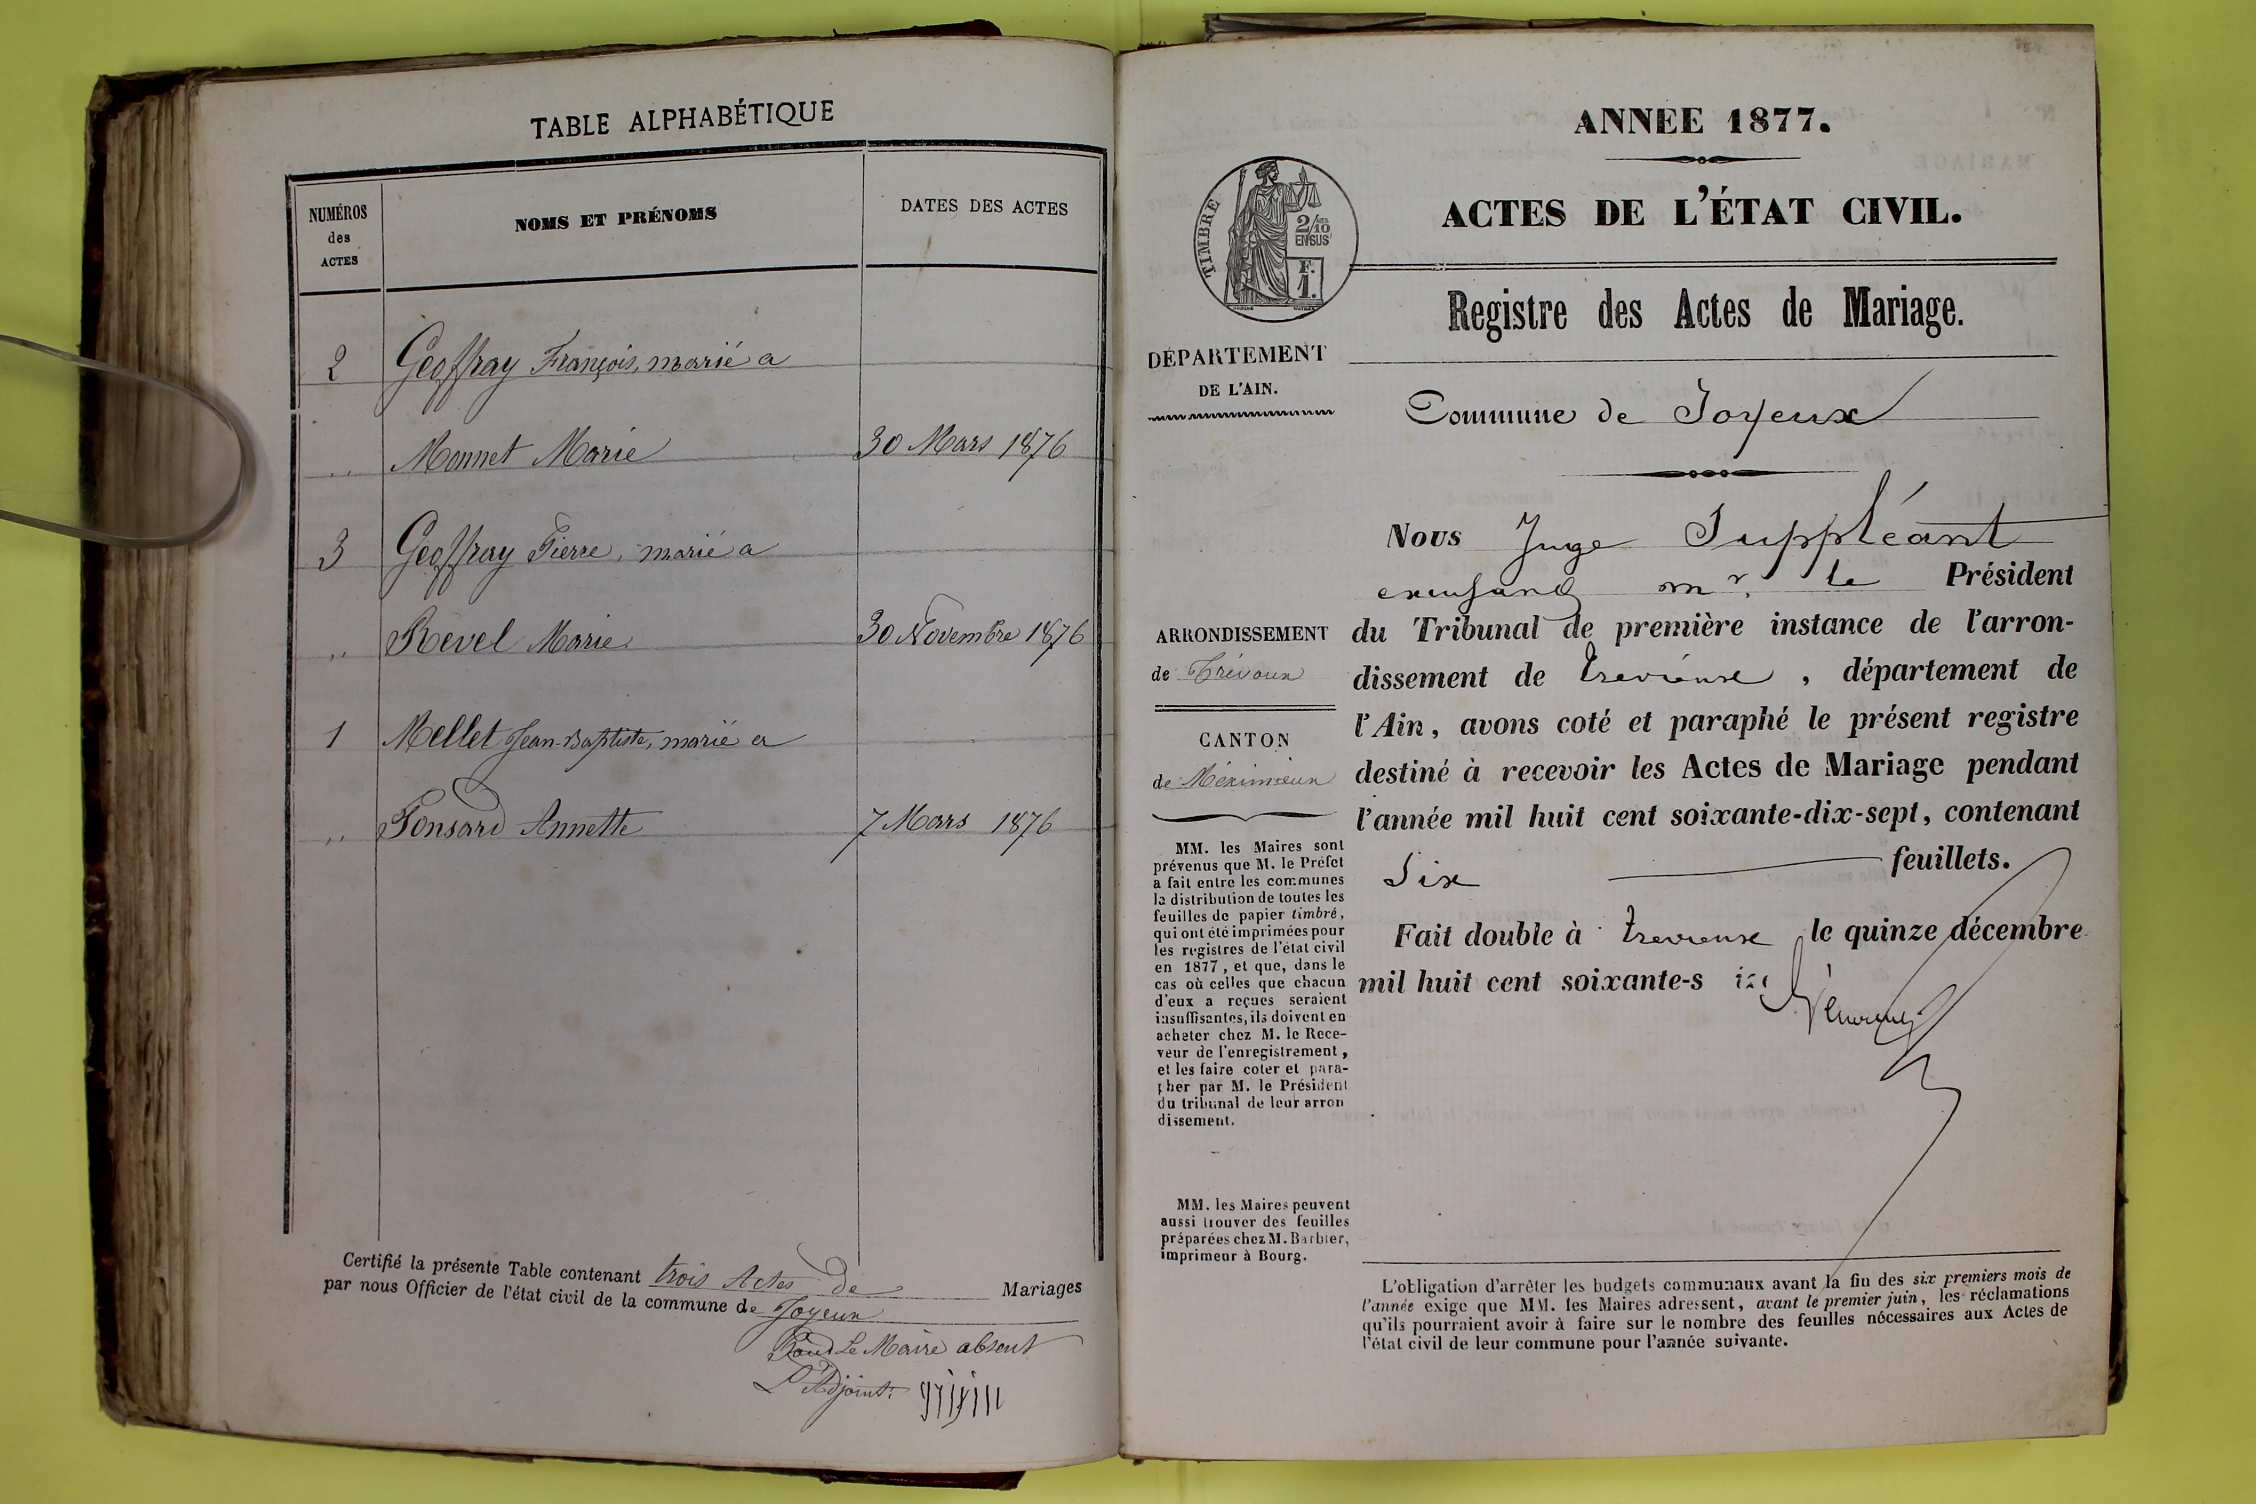 TABLE ALPHABÉTIQUE
NUMÉROS des ACTES
NOMS ET PRÉNOMS
DATES DES ACTES
2 Geoffray François, marié a
,, Monnet Marie 30 Mars 1876
3 Geoffray Pierre, marié a
,, Revel Marie 30 Novembre 1876
1 Mellet Jean-Baptiste, marié a
,, Ponsard Annette 7 Mars 1876
Certifié la présente Table contenant trois Actes de Mariages
par nous Officier de l'état civil de la commune de Joyeux
Pour Le Maire absent
L'Adjoint.
ANNEE 1877.
ACTES DE L'ÉTAT CIVIL.
TIMBRE
2/10
EN SUS
F.
1.
Registre des Actes de Mariage.
DÉPARTEMENT
DE L'AIN.
Commune de Joyeux
Nous Juge Suppléant
mr. le Président
du Tribunal de première instance de l'arron-
dissement de Trevoux, département de
l'Ain, avons coté et paraphé le présent registre
destiné à recevoir les Actes de Mariage pendant
l'année mil huit cent soixante-dix-sept, contenant
Six feuillets.
Fait double à Trevoux le quinze décembre
mil huit cent soixante-s
ARRONDISSEMENT
de Trévoux
CANTON
de Méximieux
MM. les Maires sont
prévenus que M. le Préfet
a fait entre les communes
la distribution de toutes les
feuilles de papier timbré,
qui ont été imprimées pour
les registres de l'état civil
en 1877, et que, dans le
cas où celles que chacun
d'eux a reçues seraient
insuffisantes, ils doivent en
acheter chez M. le Rece-
veur de l'enregistrement,
et les faire coter et para-
pher par M. le Président
du tribunal de leur arron
dissement.
MM. les Maires peuvent
aussi trouver des feuilles
préparées chez M. Barbier,
imprimeur à Bourg.
L'obligation d'arrêter les budgets communaux avant la fin des six premiers mois de
l'année exige que MM. les Maires adressent, avant le premier juin, les réclamations
qu'ils pourraient avoir à faire sur le nombre des feuilles nécessaires aux Actes de
l'état civil de leur commune pour l'année suivante.